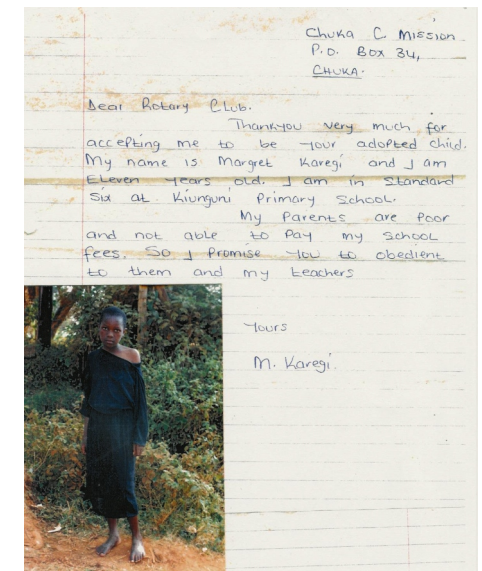 Chuka C. Mission
P.O. Box 34,
CHUKA.
Dear Rotary Club.
Thankyou very much for
accepting me to be your adopted child.
My name is Margret Karegi and I am
Eleven years old. I am in Standard
Six at Kiunguni Primary School.
My Parents are Poor
and not able to Pay my School
fees. So I Promise you to obedient
to them and my teachers
Yours
M. Karegi.